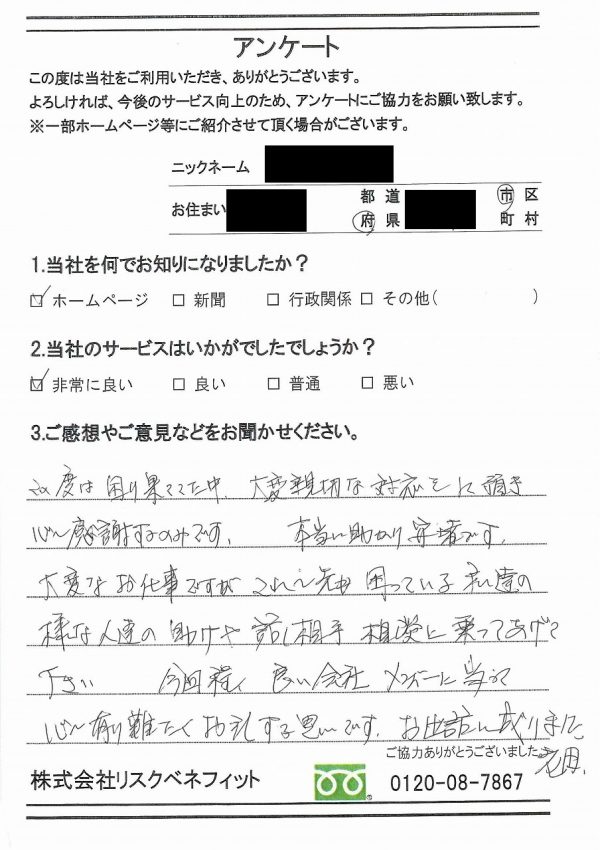 アンケート
この度は当社をご利用いただき、ありがとうございます。
よろしければ、今後のサービス向上のため、アンケートにご協力をお願い致します。
※一部ホームページ等にご紹介させて頂く場合がございます。
ニックネーム
お住まい 都 道 府 県 市 区 町 村
1.当社を何でお知りになりましたか？
☑ ホームページ □ 新聞 □ 行政関係 □ その他( )
2.当社のサービスはいかがでしたでしょうか？
☑ 非常に良い □ 良い □ 普通 □ 悪い
3.ご感想やご意見などをお聞かせください。
この度は 困り果ててた中、大変親切な対応をして頂き
心〜感謝するのみです。 本当に助かり安堵です。
大変なお仕事ですが これ〜先も 困っている 私達の
様な人達の 助けや 話し相手 相談に乗ってあげて
下さい 今回程、良い会社 メンバーに当って
心〜有り難たくお礼する思いです。お世話に成りました。
ご協力ありがとうございました。
株式会社リスクベネフィット 0120-08-7867